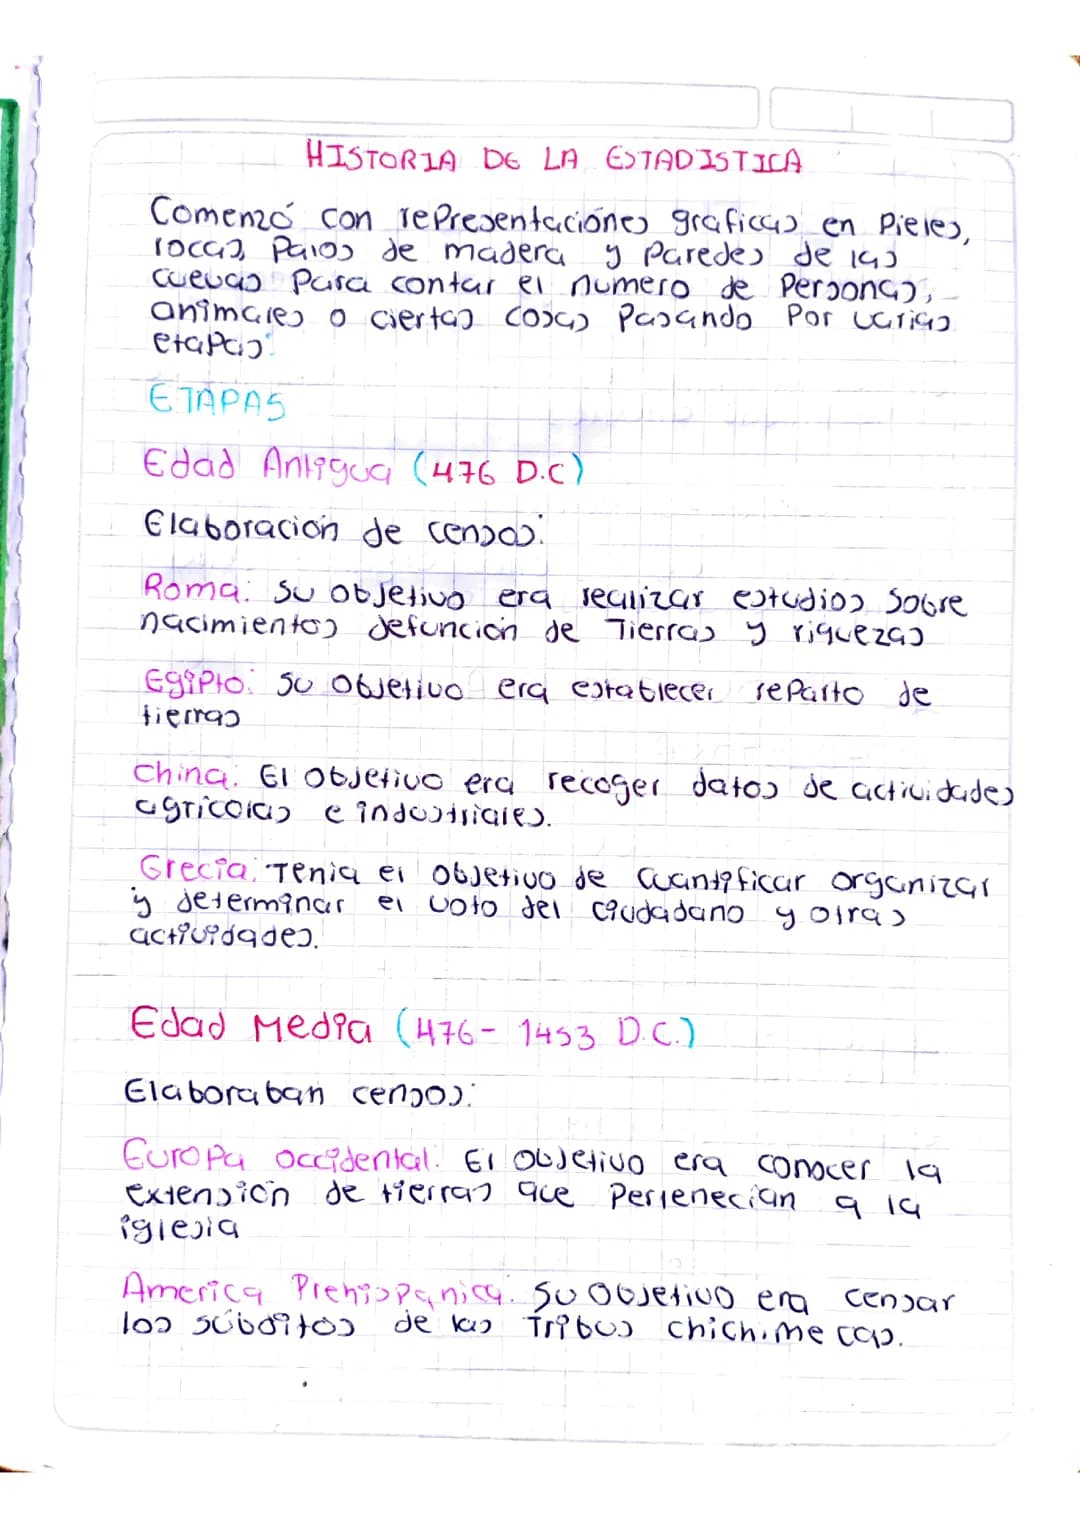 HISTORIA DE LA ESTADISTICA
Comenzó con representaciónes graficas en Pieles,
rocas, Palos de madera y Paredes de las
cuevas Para contar el numero de Personas,
animales o ciertas cosas Pasando Por varias
etapas:
ETAPAS
Edad Antigua (476 D.C)
Elaboración de censos:
Roma: Su objetivo era realizar estudios Sobre
nacimientos defunción de Tierras y riquezas
Egipto: Su Objetivo era establecer reparto de
tierras
China: El Objetivo era recoger datos de actividades
agricolas e industriales.
Grecia: Tenia el objetivo de cuantificar organizar
y determinar el voto del ciudadano y otras
actividades.
Edad Media (476- 1453 D.C.)
Elaboraban censos:
Europa occidental: El Objetivo era conocer la
extensión de tierras que Pertenecian a la
iglesia
America Prehispanica: Su Objetivo era censar
los súbditos de las Tribus chichimecas.